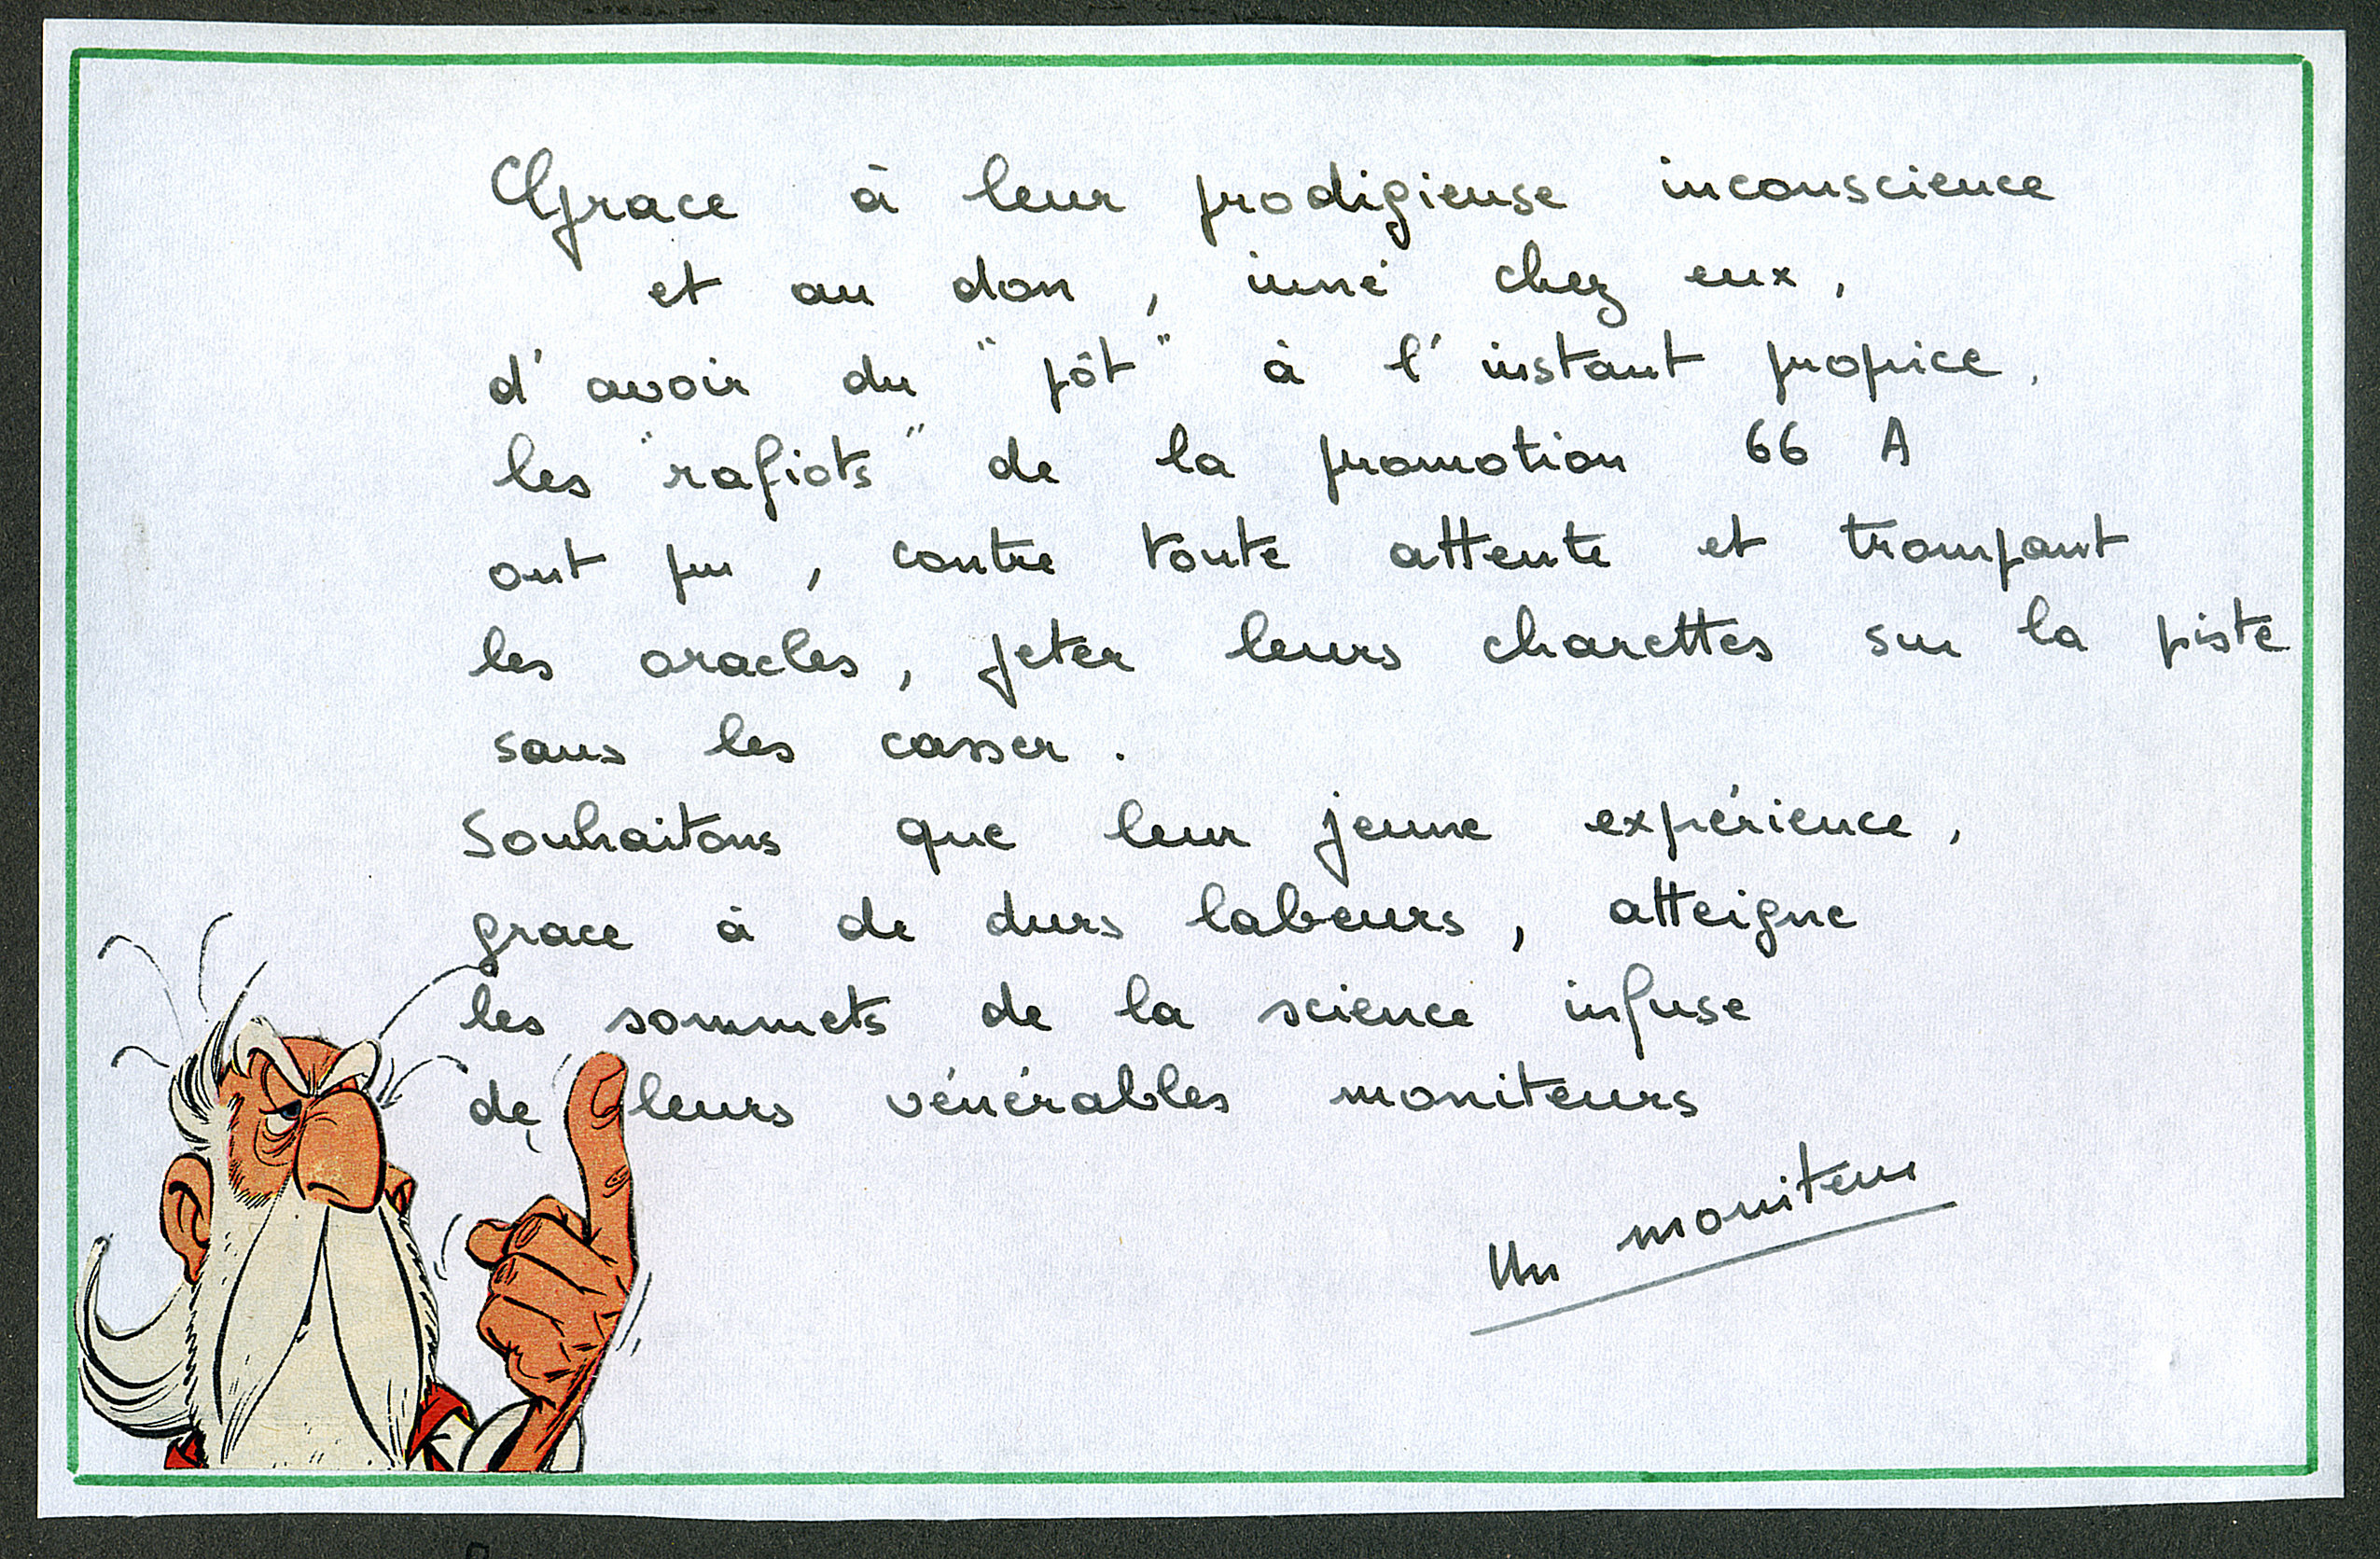 Grace à leur prodigieuse inconscience
et au don , inné chez eux ,
d' avoir du " pôt " à l' instant propice ,
les "rafiots" de la promotion 66 A
ont pu , contre toute attente et trompant
les oracles , jeter leurs charettes sur la piste
sans les casser .
Souhaitons que leur jeune expérience ,
grace à de durs labeurs , atteigne
les sommets de la science infuse
de leurs vénérables moniteurs
Un moniteur